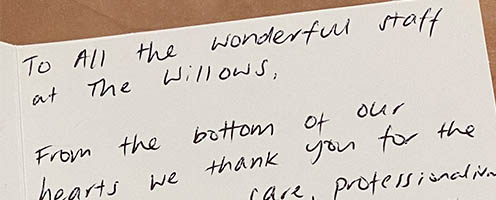 To All the wonderful staff
at The Willows,
From the bottom of our
hearts we thank you for the
care, professionalism